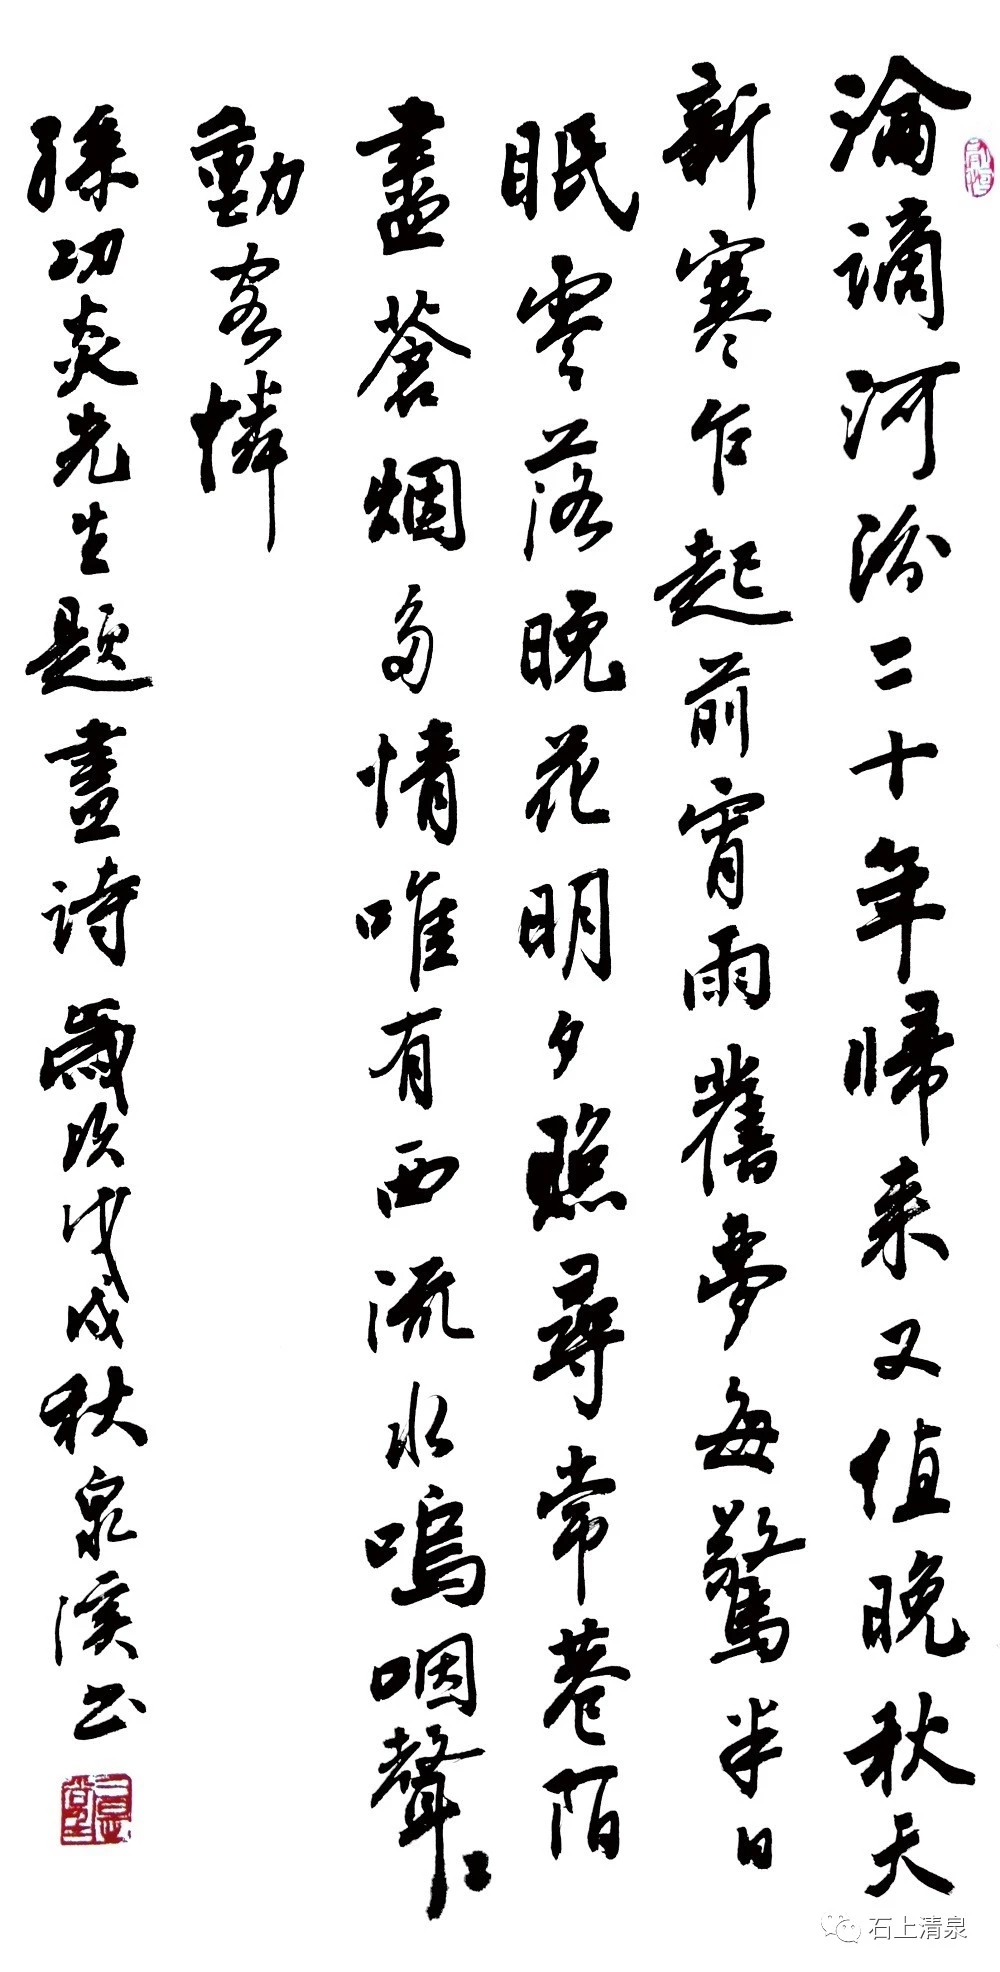 淪謫河汾二十年歸来又值晚秋天
新寒乍起前宵雨舊夢每驚半日
眠零落晚花明夕照尋常巷陌
盡蒼烟多情唯有西流水嗚咽聲〻
動客憐
孫功炎先生題畫詩歲次戊戌秋泉溪书
石上清泉